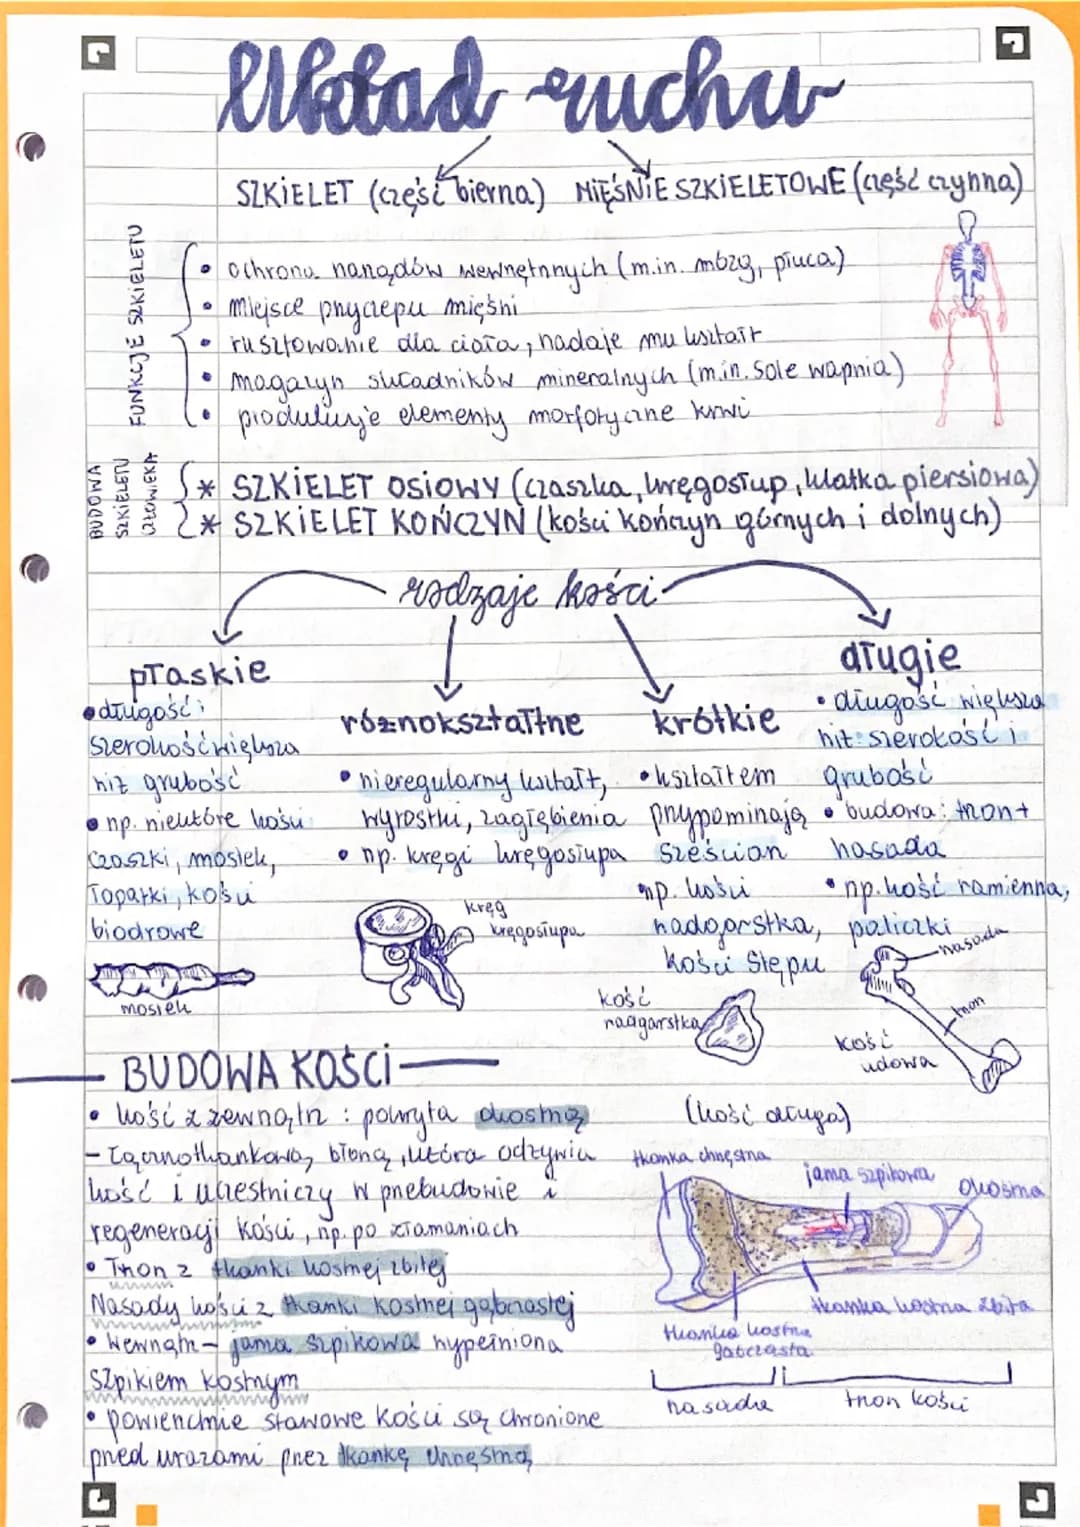 Układ ruchu
SZKIELET (część bierna) MIĘŚNIE SZKIELETOWE (część czynna)
FUNKCJE SZKIELETU
• ochrona narządów wewnętrznych (m.in. mózg, płuca)
• miejsce przyczepu mięśni
• rusztowanie dla ciała, nadaje mu kształt
• magazyn składników mineralnych (m.in. sole wapnia)
• produkuje elementy morfotyczne krwi
BUDOWA
SZKIELETU
CZŁOWIEKA
* SZKIELET OSIOWY (czaszka, kręgosłup, klatka piersiowa)
* SZKIELET KOŃCZYN (kości kończyn górnych i dolnych)
rodzaje kości
płaskie
• długość i
szerokość większa
niż grubość
• np. niektóre kości
czaszki, mostek,
łopatki, kości
biodrowe
mostek
różnokształtne
• nieregularny kształt,
wyrostki, zagłębienia
• np. kręgi kręgosłupa
kręg
kręgosłupa
krótkie
• kształtem
przypominają
sześcian
np. kości
nadgarstka,
kości stępu
kość
nadgarstka
długie
• długość większa
niż szerokość i
grubość
• budowa: trzon +
nasada
• np. kość ramienna,
paliczki
nasada
trzon
kość
udowa
BUDOWA KOŚCI
• kość z zewnątrz : pokryta okostną
- łącznotkankową błoną, która odżywia
kość i uczestniczy w przebudowie i
regeneracji kości, np. po złamaniach
• Trzon z tkanki kostnej zbitej
Nasady kości z tkanki kostnej gąbczastej
• wewnątrz - jama szpikowa wypełniona
szpikiem kostnym
• powierzchnie stawowe kości są chronione
przed urazami przez tkankę chrzęstną
(kość długa)
tkanka chrzęstna
jama szpikowa
okostna
tkanka kostna zbita
tkanka kostna
gąbczasta
nasada
trzon kości